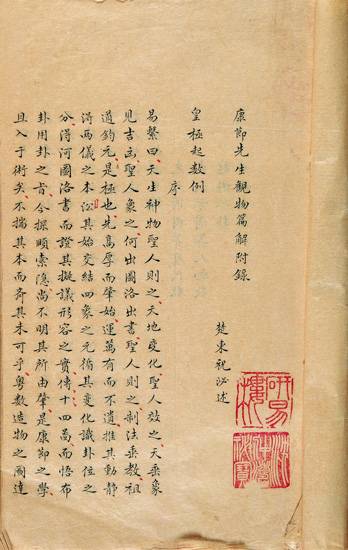 康節先生觀物篇解附錄
楚東祝泌述
研易樓
皇極起數例
序
易繫曰天生神物聖人則之天地變化聖人效之天垂象
見吉凶聖人象之河出圖洛出書聖人則之制法垂教祖
道鈞元是極也先高厚而肇始運萬有而不遺推其動靜
得兩儀之本沿其始交結四象之元循其變化識卦位之
分得河圖洛書而證其擬議形容之實傳十四萬而悟布
卦用卦之旨今探賾索隱尚不明其所由肇是康節之學
且入于術矣不揣其本而齊其末可乎粤數造物之圖達